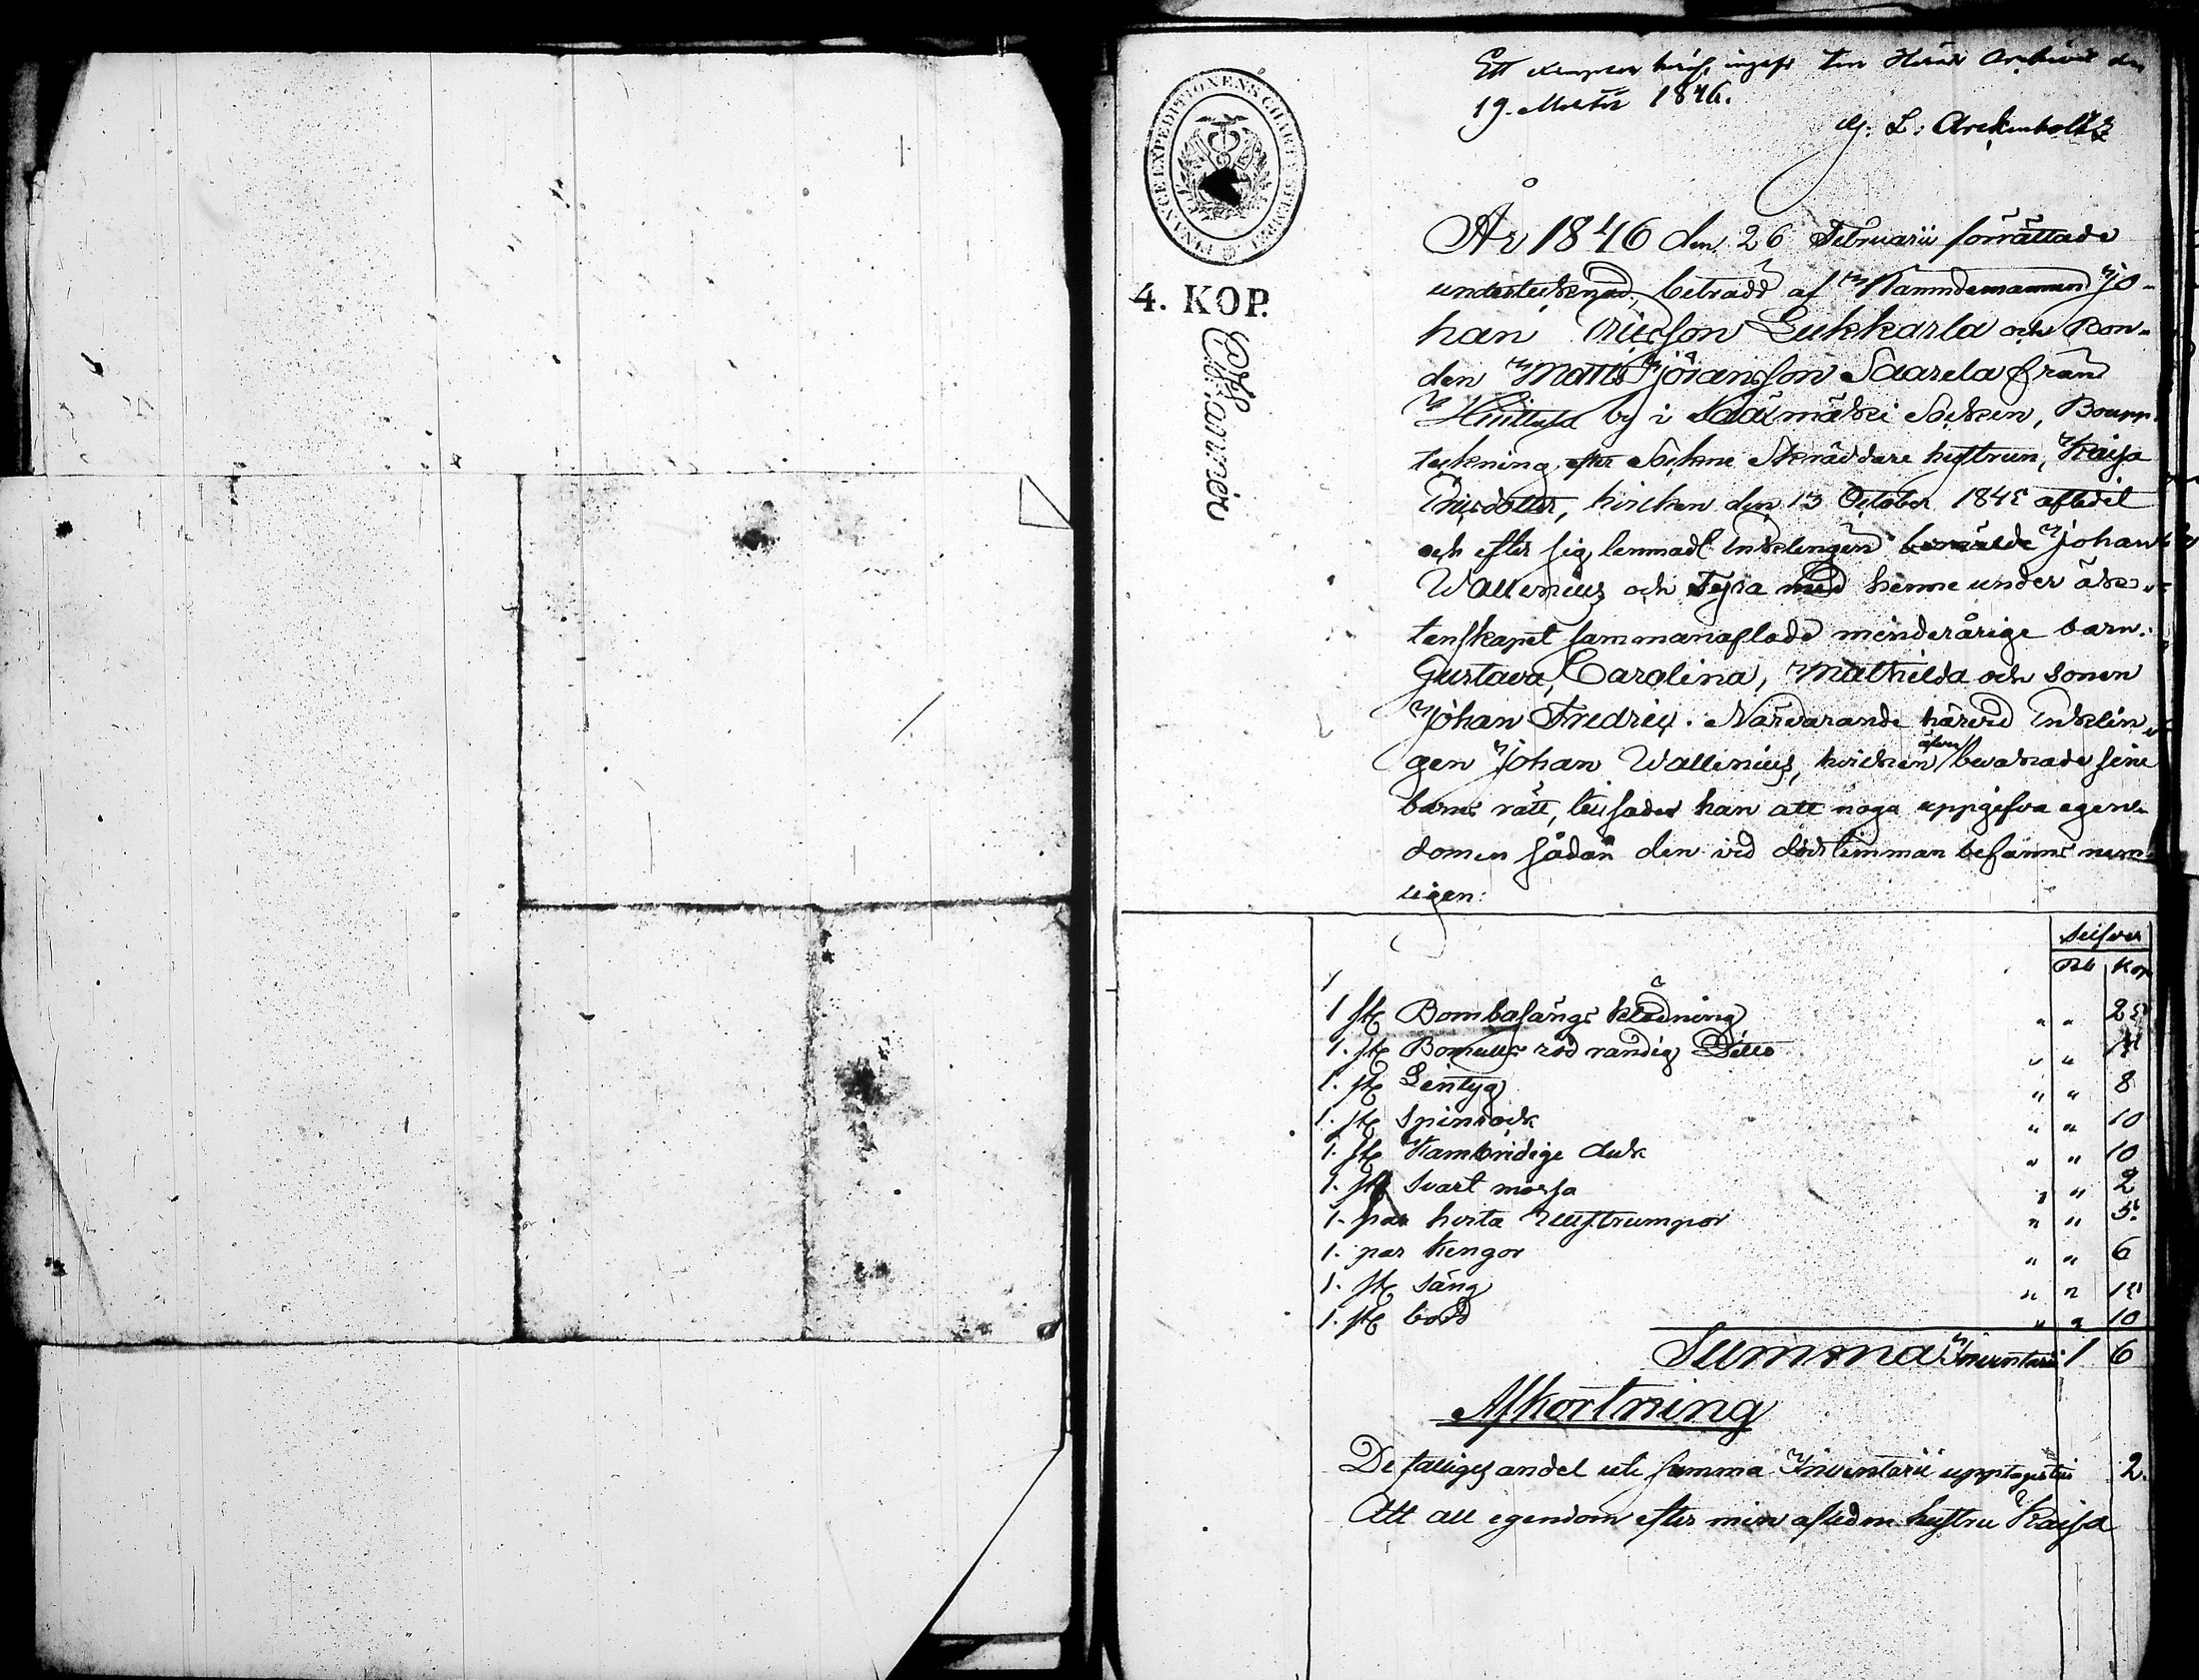 Ett exemplar häraf ingifvit till Härads Archivet den
19. Martii 1846.
G. L. Arckenholtz
FINANCE EXPEDITIONENS CHARTÆ STEMPEL
4. KOP.
År 1846 den 26 Februarii förrättade
undertecknad, biträdd af Nämndemannen Jo-
han Ericsson Lukkarla och Bon-
den Matts Jöransson Saarela från
Huittula by i Sääxmäki Socken, Boupp-
teckning efter Sockne Skräddare hustrun, Kaisa
Thusdotter, hvilken den 13 October 1845 afledit
och efter sig lemnadt Enklingen Johan
Wallenius och Fyra med henne under äkt-
tenskapet sammanaflade minderårige barn.
Gustava, Carolina, Mathilda och sonen
Johan Fredric. Närvarande härvid Enklin-
gen Johan Wallenius, hvilken äfven bevakade sine
barns rätt, tillsades han att noga uppgifva egen-
domen sådan den vid dödstimman befanns nem-
ligen:
Silfver
Rub Kop
1 st Bombasängs klädning " " 25
1. st Bomulls röd randig Ditto " " 15
1. st Lintyg " " 8
1. st Spinrock " " 10
1. st Kambridige duk " " 10
1. st Svart mössa " " 2
1. par hvita ullstrumpor " " 5.
1. par Kengor " " 6
1. st säng " " 15
1. st bord " " 10
Summa Inventarii 1 6
Afkortning
De fattiges andel uti Summa Inventarii upptages till 2.
Att all egendom efter min afledne hustru Kaisa